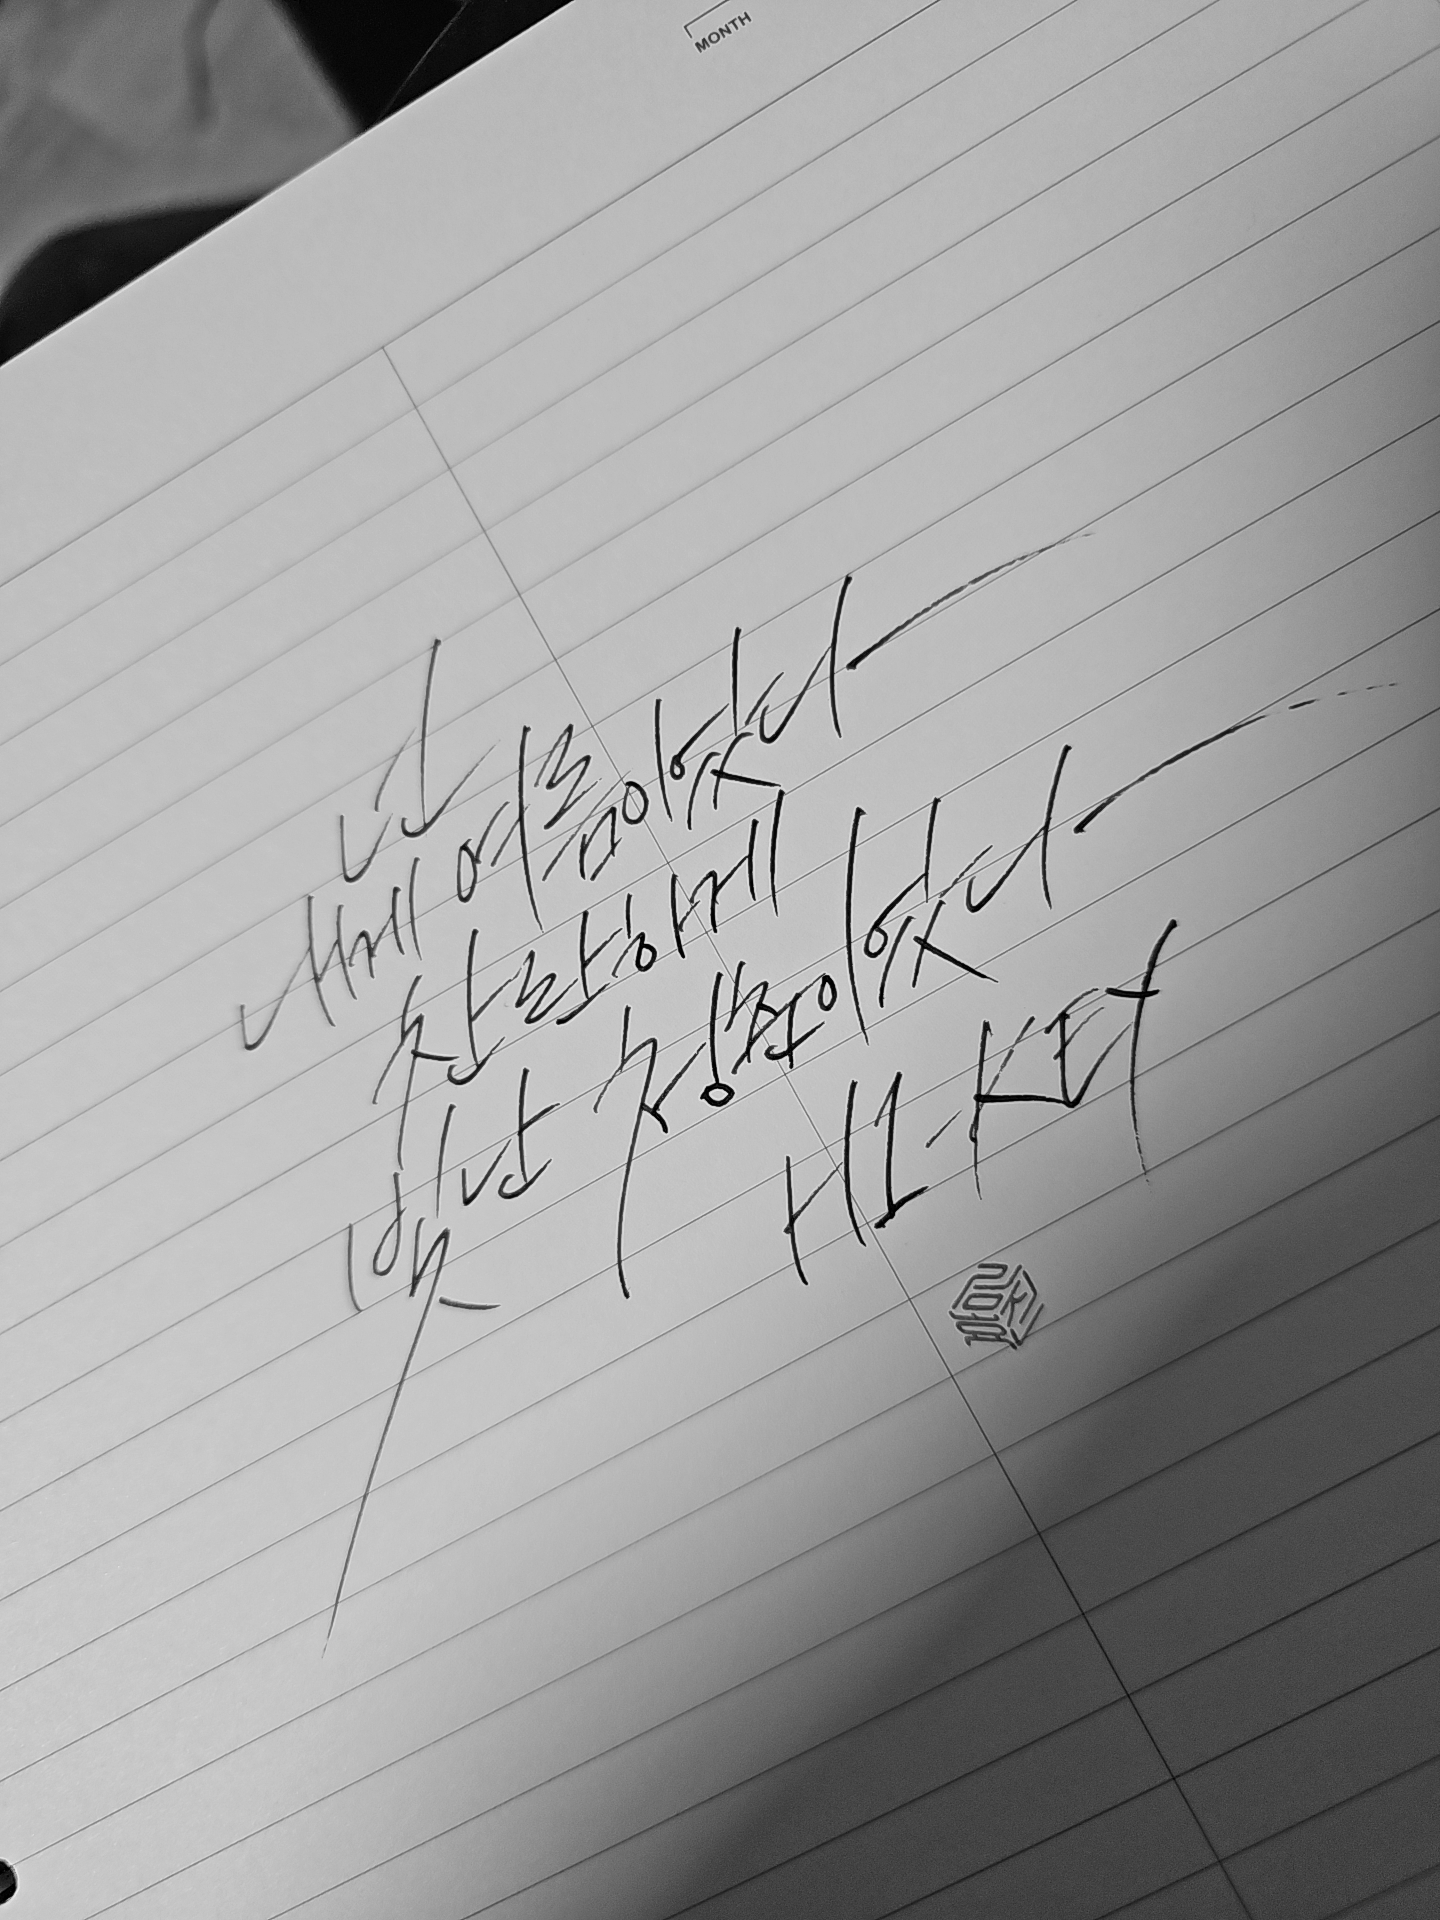 MONTH
넌
내게 여름이었다
찬란하게
빛난 청춘이었다
H1-KEY